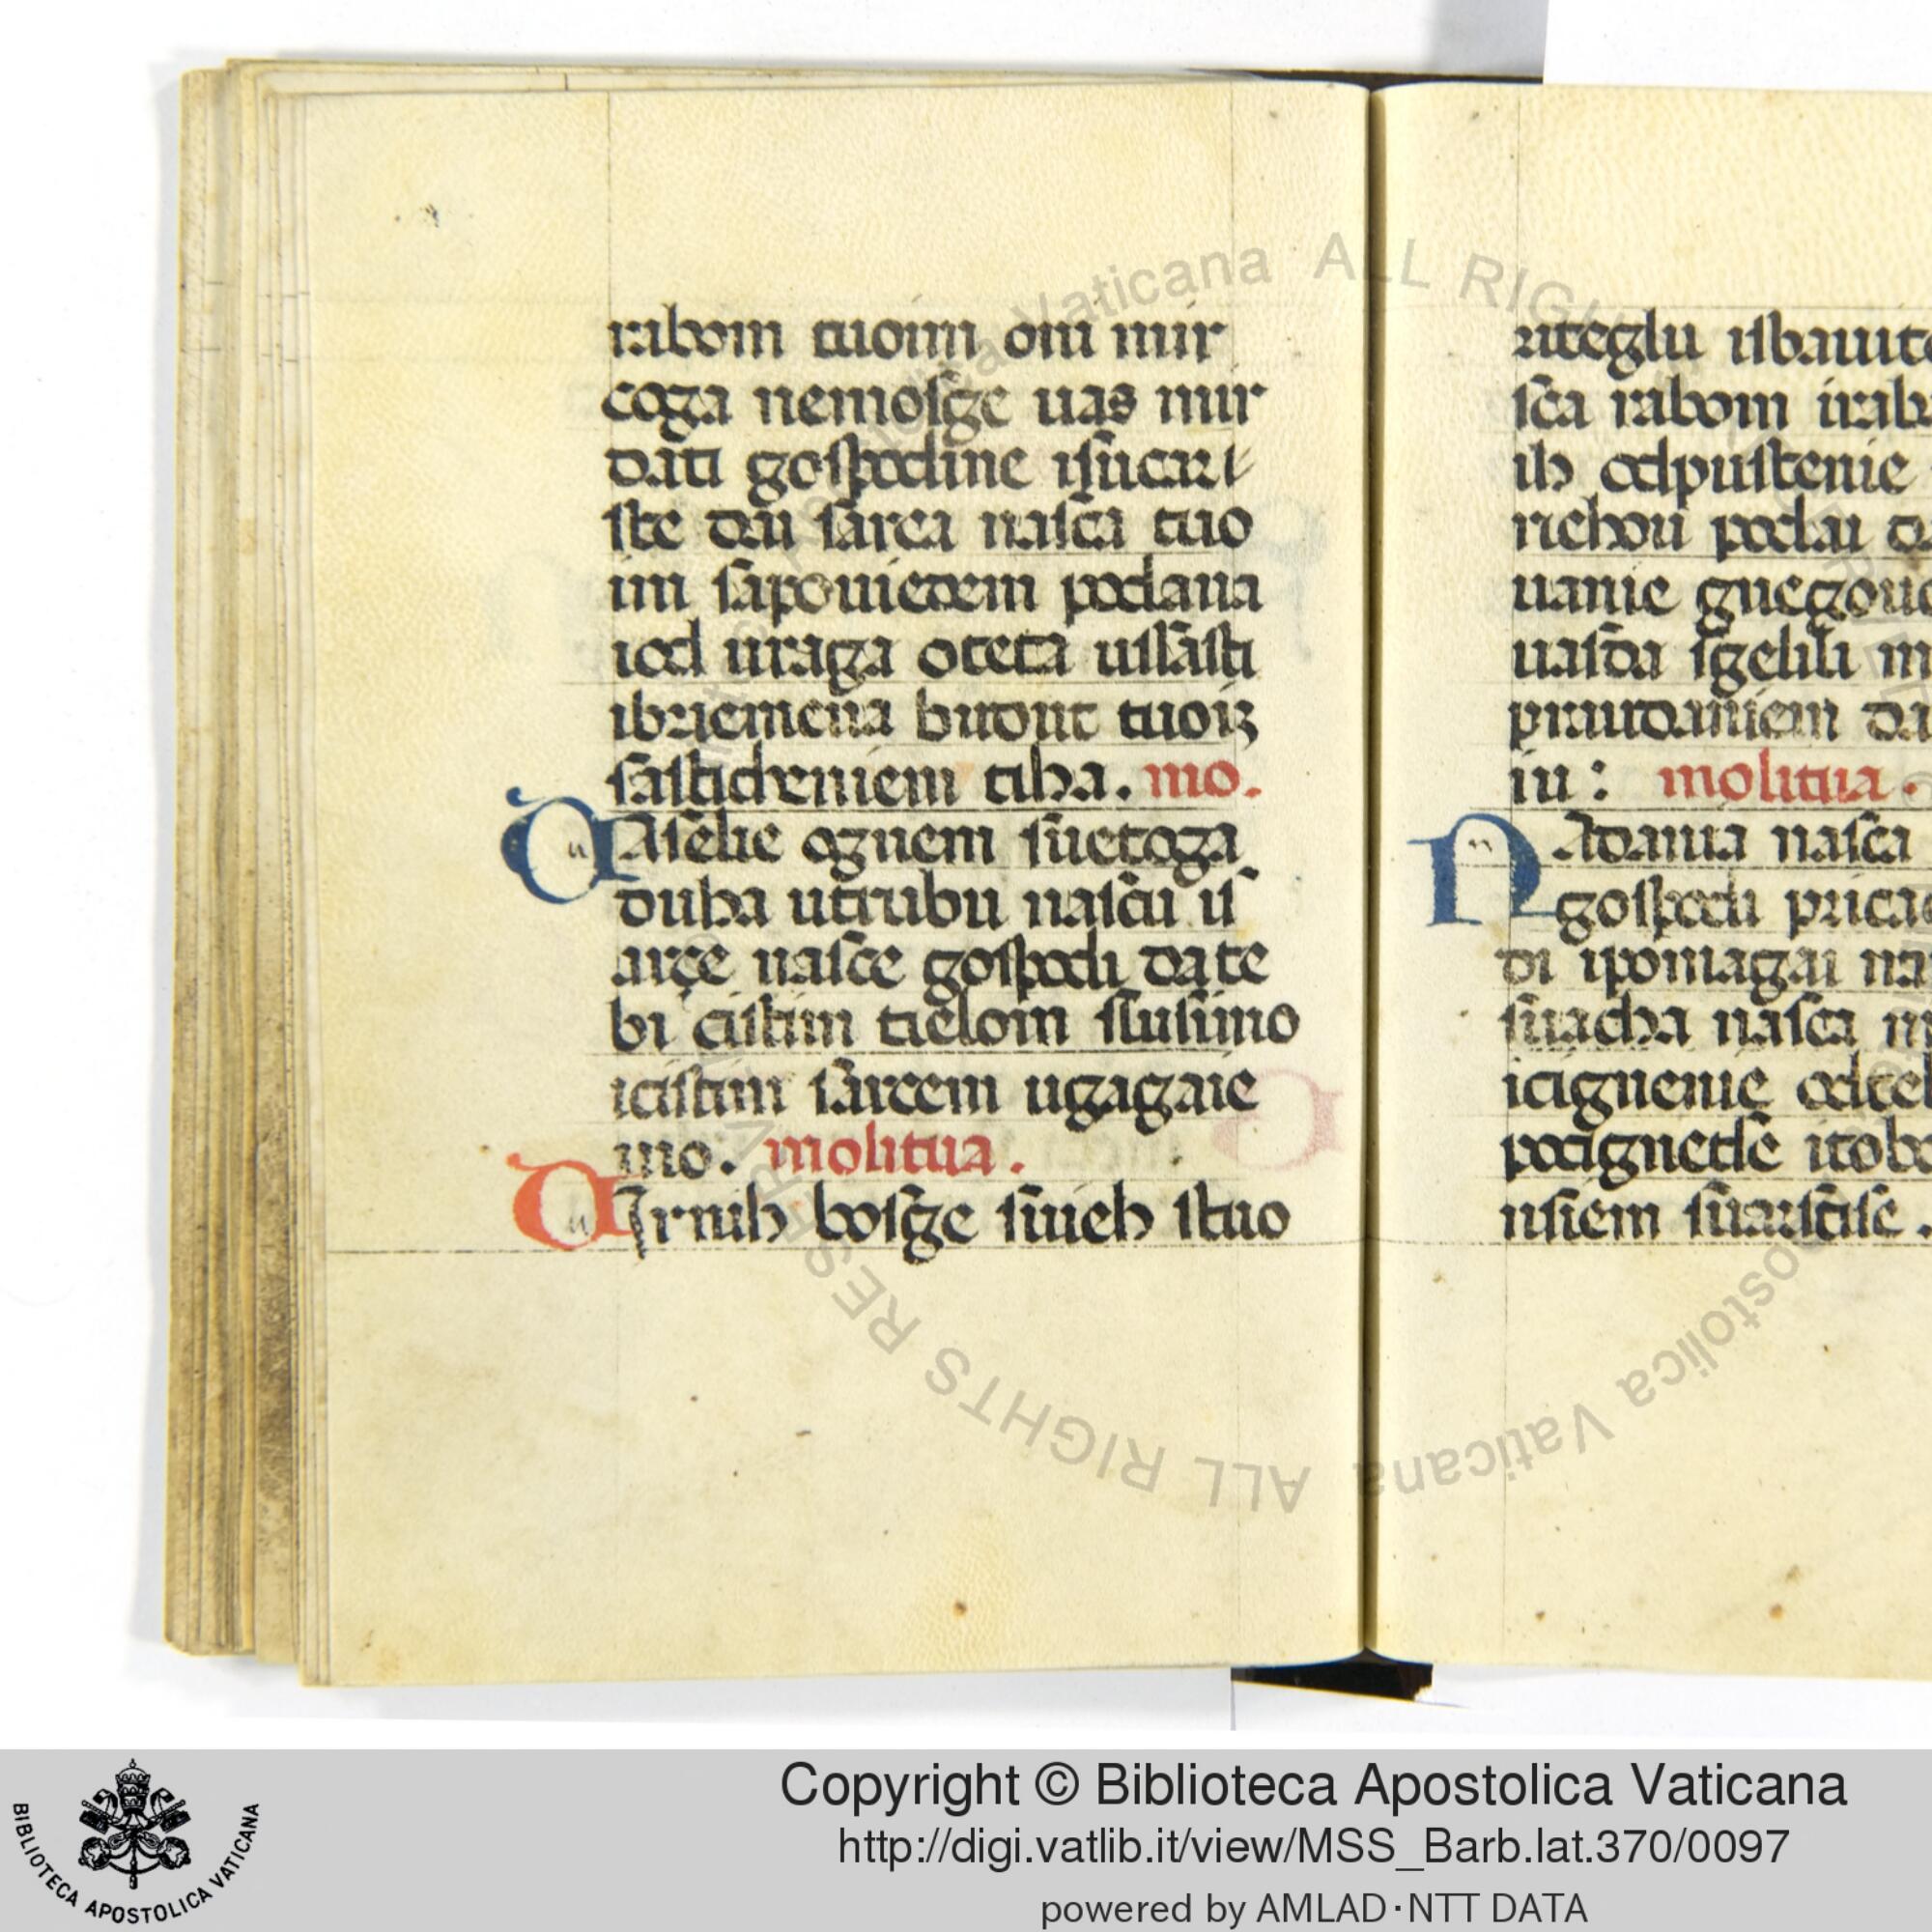 rabom tuoim oni mir
coga nemosge uas mir
dati gospodine isucri
ste da sarca nasca tuo
im sapouiedem podana
iod uraga oteta uissasti
ibriemena budut tuoiz
sasticheniem tiha. mo.
Uasesie ognem suetoga
duha utrubu nascu is
arçe nasce gospodi da te
bi cistim tielom slusimo
icistim sarcem ugagaie
mo. molitua.
Uirnih bosge suieh stuo
riteglu isbauite
sca rabom irab
ih odpustenie
richou podai d
uanie gnegoue
uasda sgelili m
praudaniem da
iu : molitua.
Nadauia nasca
gospodi prica
di ipomagai na
suacha nasca m
icignenie odteb
pocignetse itobo
usiem suarscise.
Copyright © Biblioteca Apostolica Vaticana
http://digi.vatlib.it/view/MSS_Barb.lat.370/0097
powered by AMLAD·NTT DATA
BIBLIOTECA APOSTOLICA VATICANA